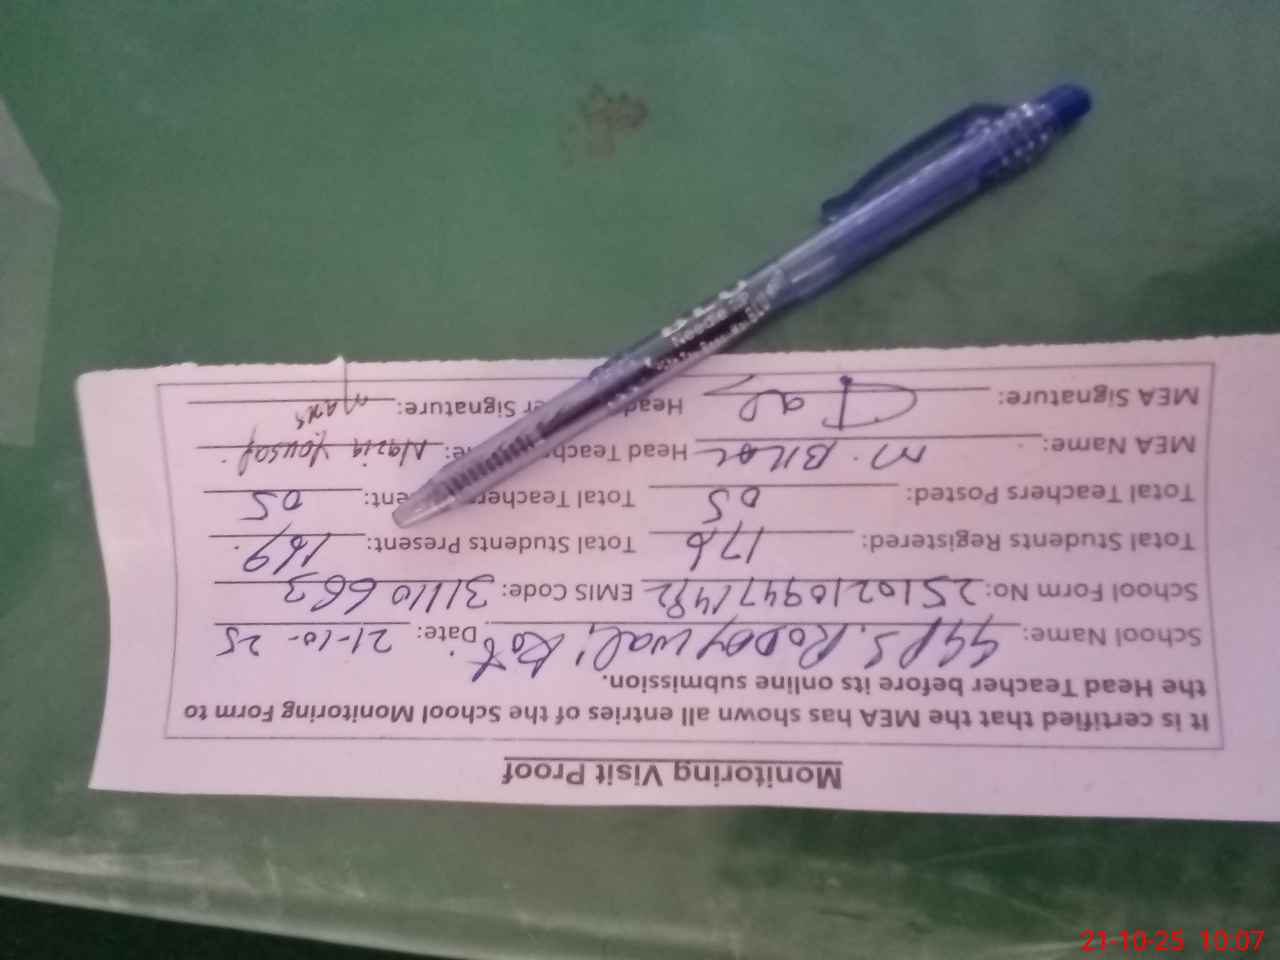 Monitoring Visit Proof
It is certified that the MEA has shown all entries of the School Monitoring Form to
the Head Teacher before its online submission.
School Name: GGPS. Kot Date: 21-10-25
School Form No: EMIS Code: 31110663
Total Students Registered: 176 Total Students Present: 169
Total Teachers Posted: 05 Total Teachers 05
MEA Name: M. Bilal Head Nazia Yousaf
MEA Signature: Head Signature:
Needle
21-10-25 10:07